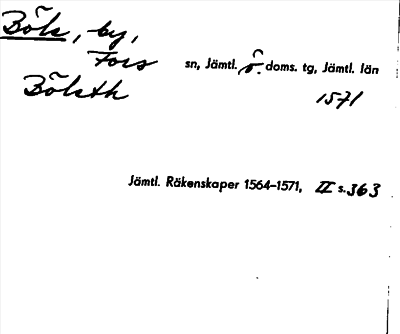 Böle, by,
Fors sn, Jämtl. ö. doms. tg, Jämtl. län
Bölsth 1571
Jämtl. Räkenskaper 1564-1571, II s. 363